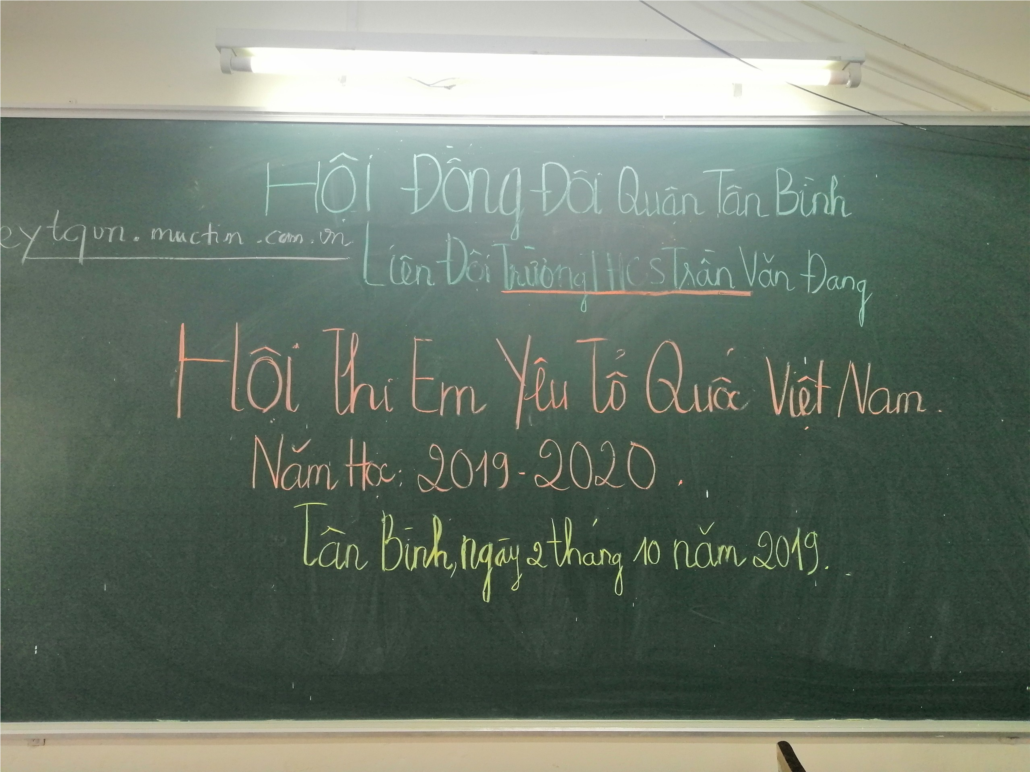 Hội Đồng Đội Quân Tân Bình
eytqvn.muctin.com.vn
Liên Đội Trường THCS Trần Văn Đang
Hội Thi Em Yêu Tổ Quốc Việt Nam.
Năm Học: 2019-2020.
Tân Bình, ngày 2 tháng 10 năm 2019.